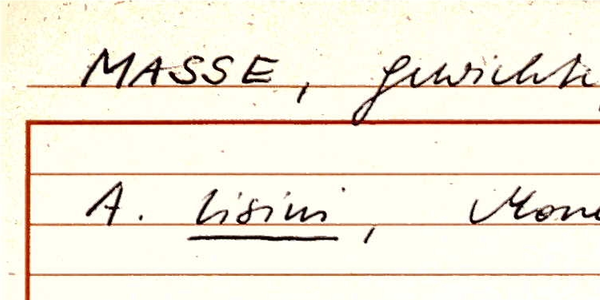 MASSE, Gewichte,
A. Lisini, Mone